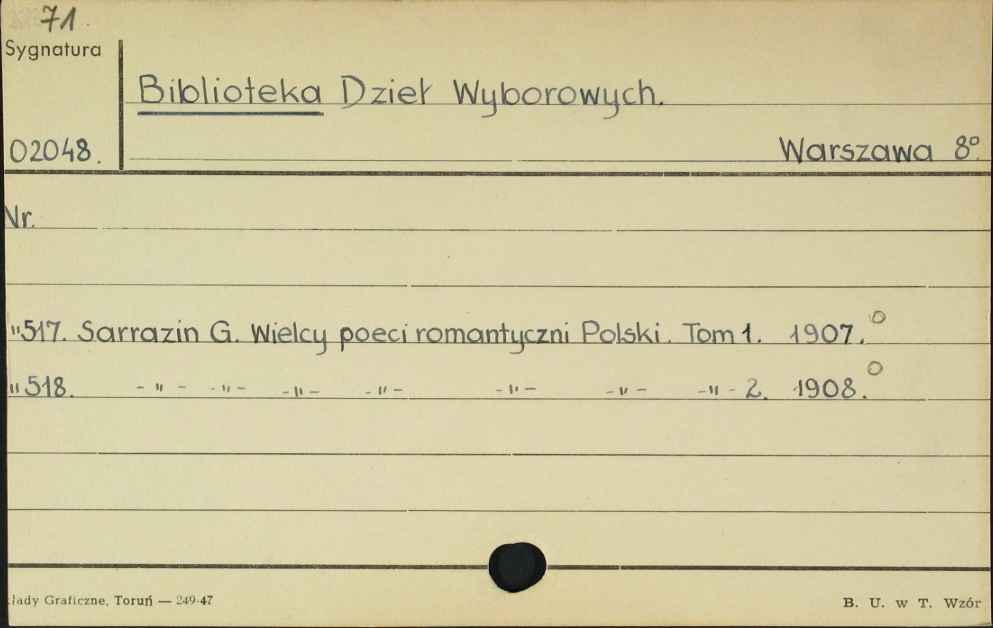 71
Sygnatura
Biblioteka Dzieł Wyborowych.
02048.
Warszawa 8°.
Nr.
"517. Sarrazin G. Wielcy poeci romantyczni Polski. Tom 1. 1907.°
"518. -"- -"- -"- -"- -"- -"- -"- 2. 1908.°
łady Graficzne, Toruń — 249-47
B. U. w T. Wzór